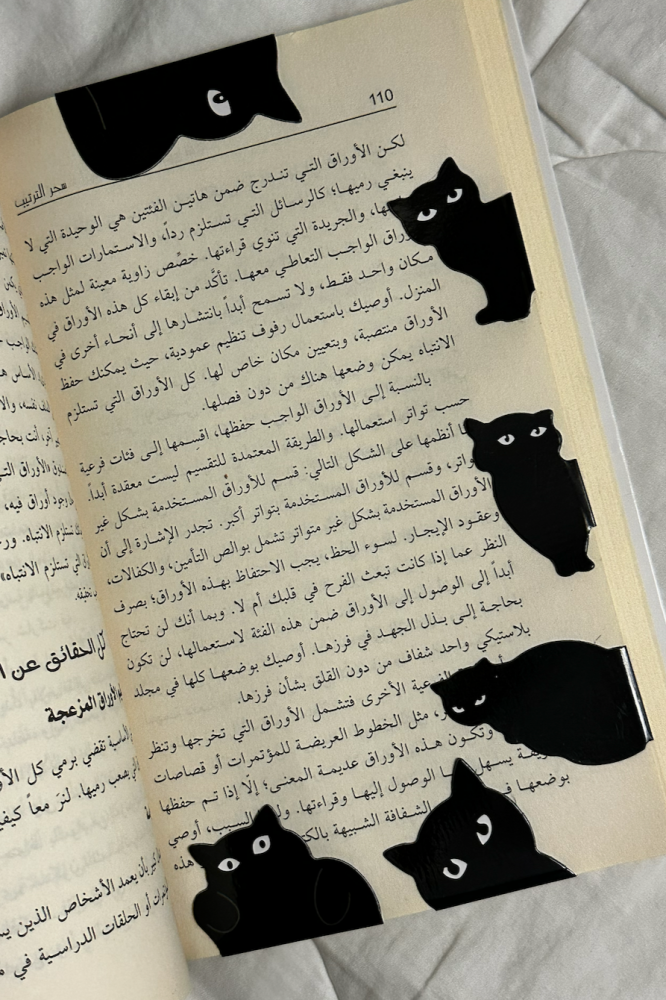 110
سحر الترتيب
لكن الأوراق التي تندرج ضمن هاتين الفئتين هي الوحيدة التي لا
ينبغي رميها؛ كالرسائل التي تستلزم رداً، والاستمارات الواجب
والجريدة التي تنوي قراءتها. خصِّص زاوية معينة لمثل هذه
الواجب التعاطي معها. تأكَّد من إبقاء كل هذه الأوراق في
مكان واحد فقط، ولا تسمح أبداً بانتشارها إلى أنحاء أخرى في
المنزل. أوصيك باستعمال رفوف تنظيم عمودية، حيث يمكنك حفظ
الأوراق منتصبة، وبتعيين مكان خاص لها. كل الأوراق التي تستلزم
الانتباه يمكن وضعها هناك من دون فصلها.
بالنسبة إلى الأوراق الواجب حفظها، اقسِمها إلى فئات فرعية
حسب تواتر استعمالها. والطريقة المعتمدة للتقسيم ليست معقدة أبداً.
أنظمها على الشكل التالي: قسم للأوراق المستخدمة بشكل غير
وقسم للأوراق المستخدمة بتواتر أكبر. تجدر الإشارة إلى أن
الأوراق المستخدمة بشكل غير متواتر تشمل بوالص التأمين، والكفالات،
وعقود الإيجار. لسوء الحظ، يجب الاحتفاظ بهذه الأوراق؛ بصرف
النظر عما إذا كانت تبعث الفرح في قلبك أم لا. وبما أنك لن تحتاج
أبداً إلى الوصول إلى الأوراق ضمن هذه الفئة لاستعمالها، لن تكون
بحاجة إلى بذل الجهد في فرزها. أوصيك بوضعها كلها في مجلد
بلاستيكي واحد شفاف من دون القلق بشأن فرزها.
الفرعية الأخرى فتشمل الأوراق التي تخرجها وتنظر
مثل الخطوط العريضة للمؤتمرات أو قصاصات
وتكون هذه الأوراق عديمة المعنى؛ إلّا إذا تم حفظها
يسهل الوصول إليها وقراءتها. السبب، أوصي
بوضعها الشفافة الشبيهة
هذه
كلّ الحقائق عن
الأوراق المزعجة
تقضي برمي كل
يصعب رميها. لنرَ معاً
بأن يعمد الأشخاص الذين
أو الحلقات الدراسية في